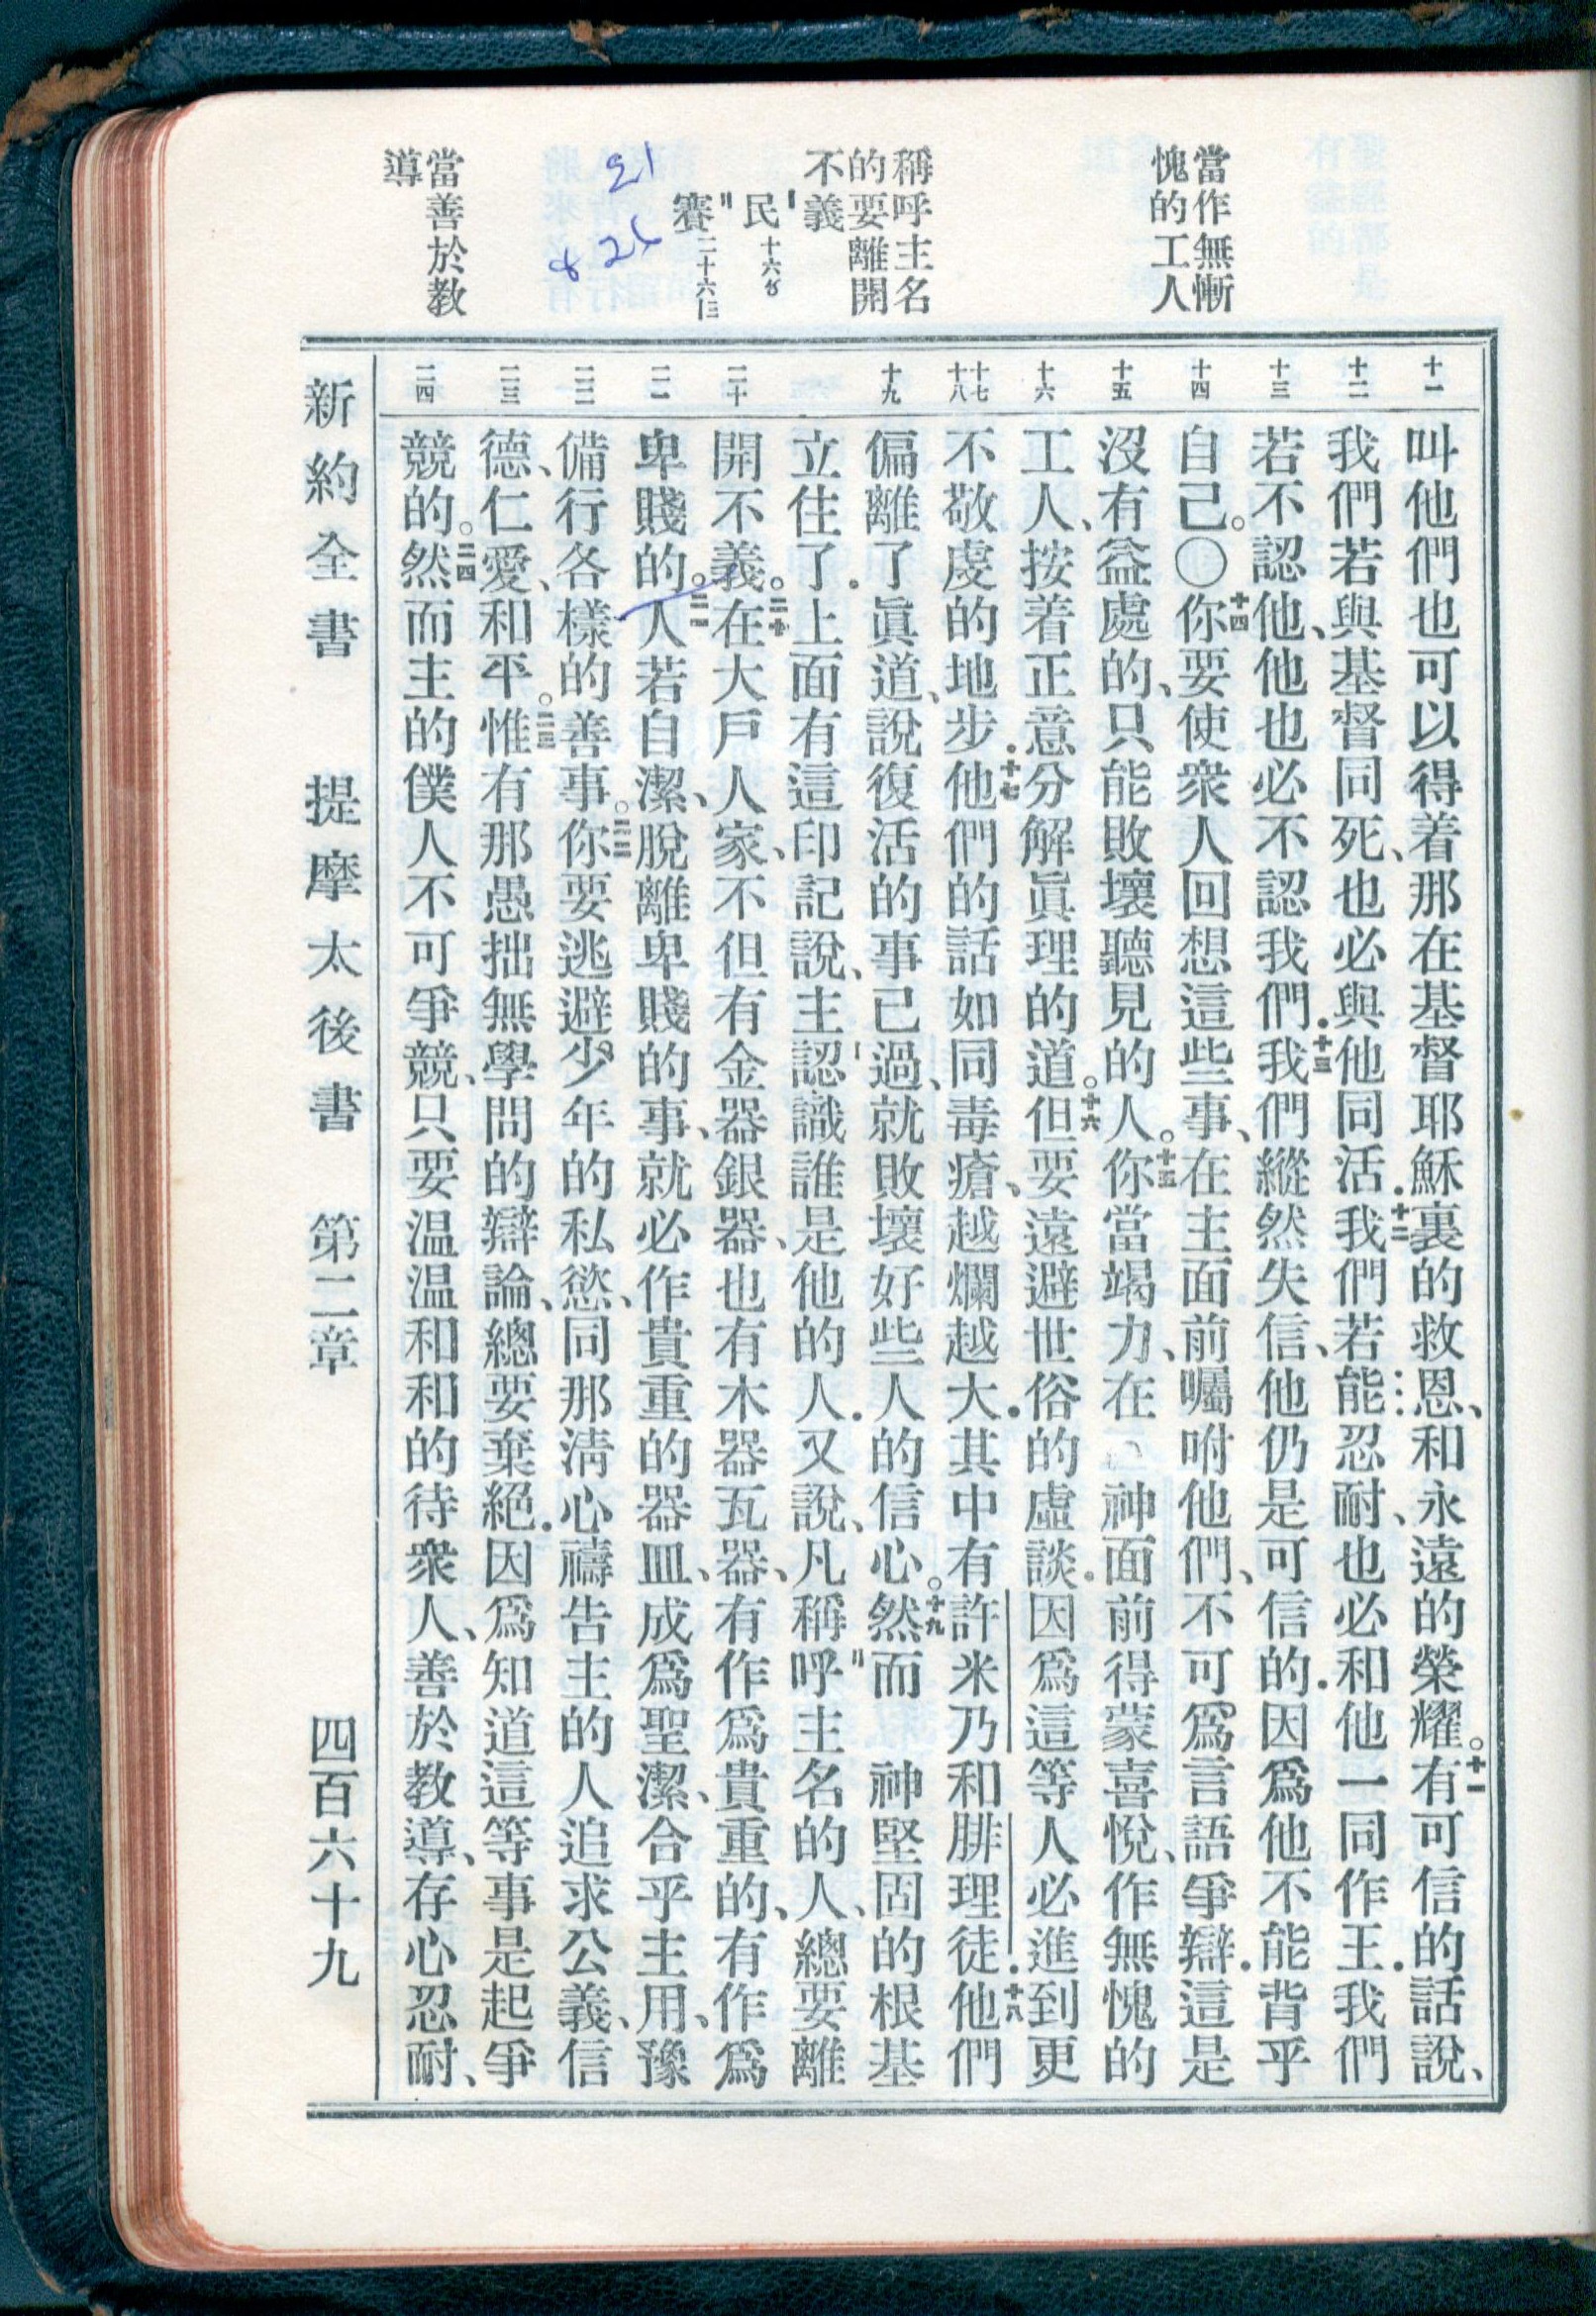 當作無慚
愧的工人
稱呼主名
的要離開
不義
民十六
賽二十六
21
& 26
當善於教
導
十一
十二
十三
十四
十五
十六
十七
十八
十九
二十
二一
二二
二三
二四
叫他們也可以得着那在基督耶穌裏的救恩、和永遠的榮耀。十一有可信的話說、
我們若與基督同死、也必與他同活．十二我們若能忍耐、也必和他一同作王．我們
若不認他、他也必不認我們．十三我們縱然失信、他仍是可信的．因爲他不能背乎
自己。○十四你要使衆人回想這些事、在主面前囑咐他們、不可爲言語爭辯．這是
沒有益處的、只能敗壞聽見的人。十五你當竭力、在　神面前得蒙喜悅、作無愧的
工人、按着正意分解眞理的道。十六但要遠避世俗的虛談．因爲這等人必進到更
不敬虔的地步．十七他們的話如同毒瘡、越爛越大．其中有許米乃和腓理徒．十八他們
偏離了眞道、說復活的事已過、就敗壞好些人的信心。十九然而　神堅固的根基
立住了．上面有這印記說、主認識誰是他的人．又說、凡稱呼主名的人、總要離
開不義。二十在大戶人家、不但有金器銀器、也有木器瓦器、有作爲貴重的、有作爲
卑賤的。二一人若自潔、脫離卑賤的事、就必作貴重的器皿、成爲聖潔、合乎主用、豫
備行各樣的善事。二二你要逃避少年的私慾、同那淸心禱告主的人追求公義、信
德、仁愛、和平。二三惟有那愚拙無學問的辯論、總要棄絕．因爲知道這等事是起爭
競的。二四然而主的僕人不可爭競、只要温温和和的待衆人、善於教導、存心忍耐、
新約全書　提摩太後書　第二章　四百六十九